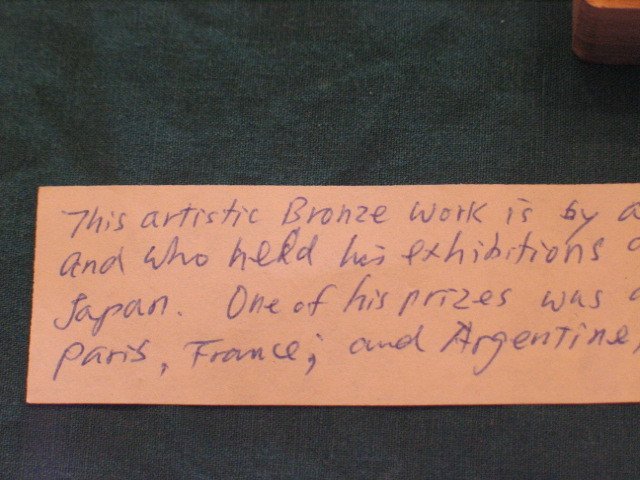 This artistic Bronze work is by a
and who held his exhibitions
Japan. One of his prizes was a
paris, France; and Argentine,